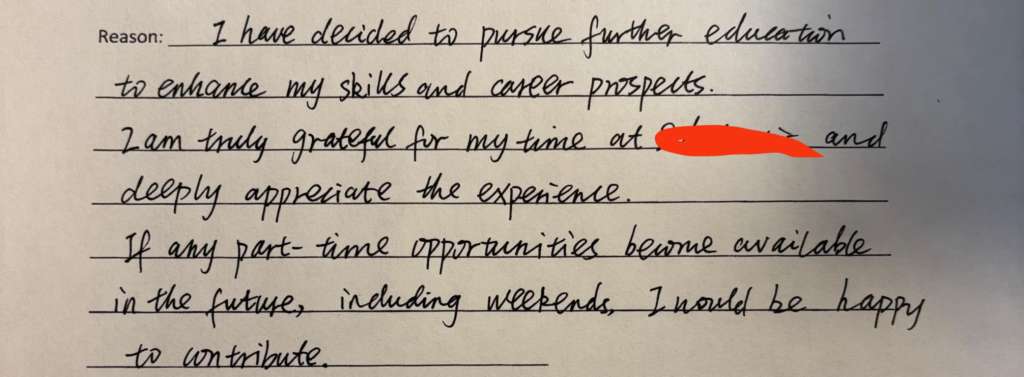 Reason: I have decided to pursue further education
to enhance my skills and career prospects.
I am truly grateful for my time at and
deeply appreciate the experience.
If any part-time opportunities become available
in the future, including weekends, I would be happy
to contribute.